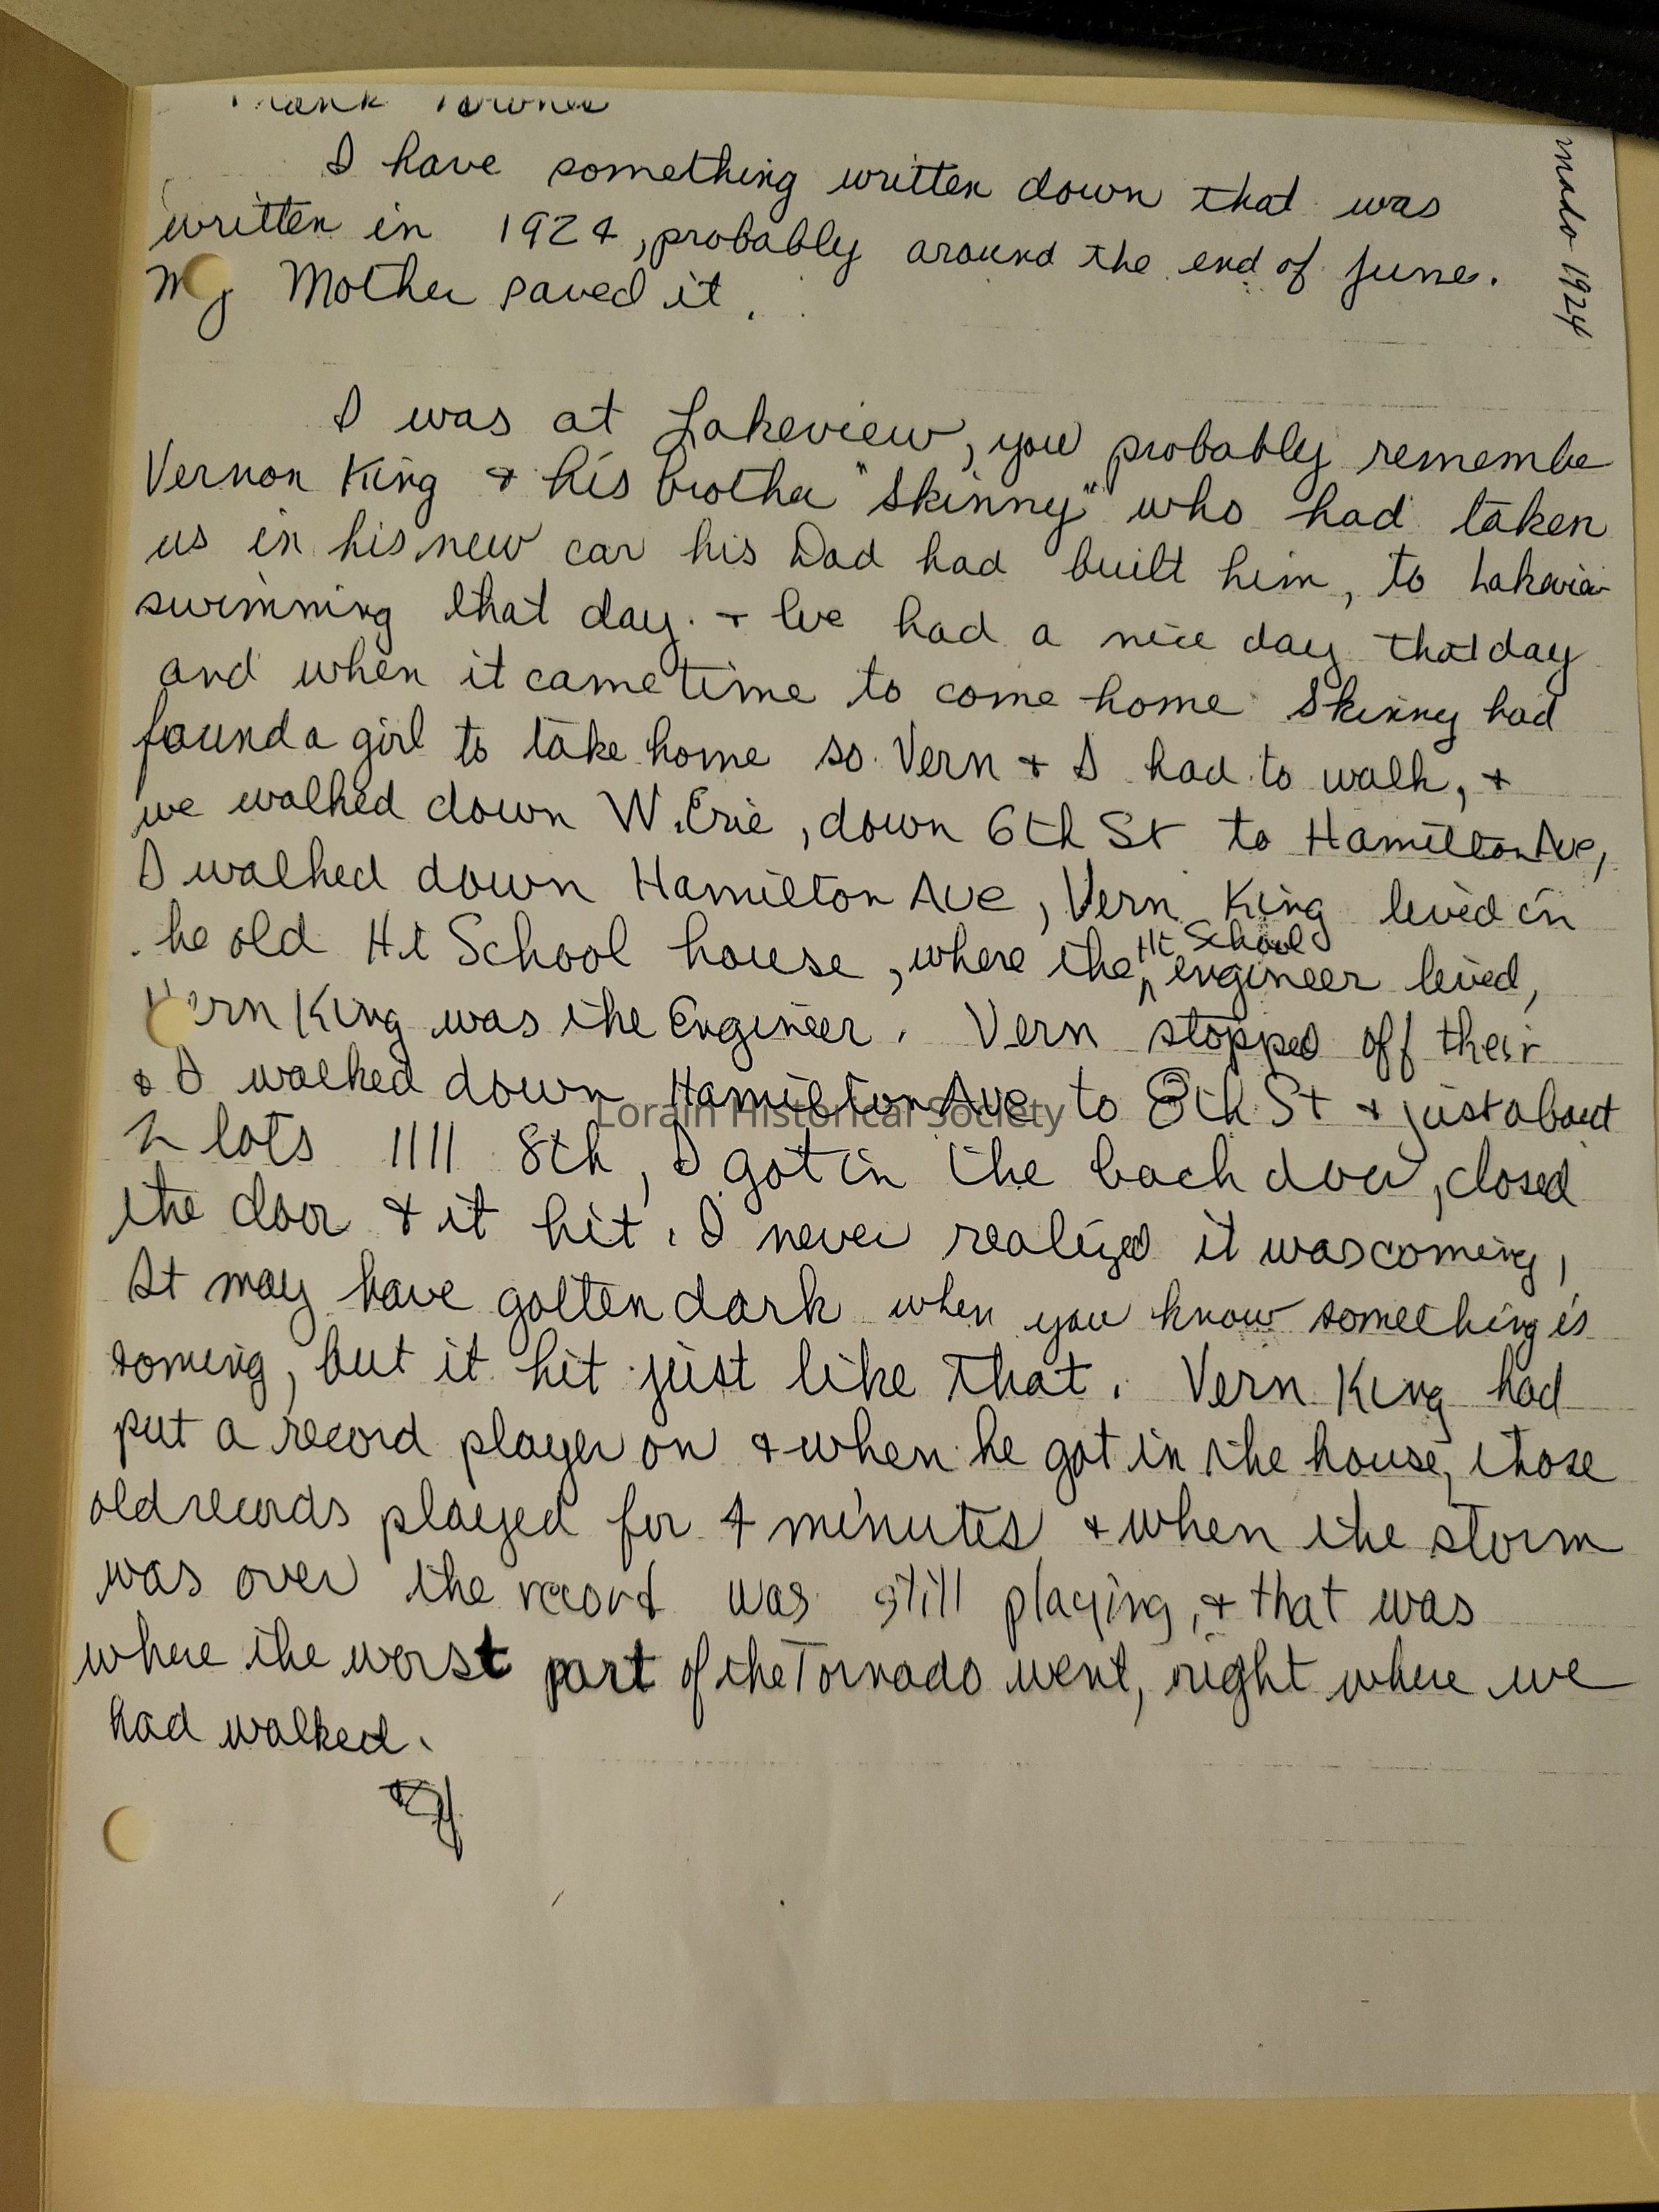 I have something written down that was
written in 1924, probably around the end of June.
My Mother saved it.
I was at Lakeview, you probably remembe
Vernon King & his brother "Skinny" who had taken
us in his new car his Dad had built him, to Lakeview
swimming that day. & We had a nice day that day
and when it came time to come home Skinny had
found a girl to take home so Vern & I had to walk, &
we walked down W. Erie, down 6th St to Hamilton Ave,
I walked down Hamilton Ave, Vern King lived in
he old Hi School house, where the Hi School engineer lived,
Vern King was the Engineer. Vern stopped off their
& I walked down Hamilton Ave to 8th St & just about
2 lots 1111 8th, I got in the back door, closed
the door & it hit. I never realized it was coming,
It may have gotten dark when you know something is
coming, but it hit just like that. Vern King had
put a record player on & when he got in the house, those
old records played for 4 minutes & when the storm
was over the record was still playing, & that was
where the worst part of the Tornado went, right where we
had walked.
nado 1924
Lorain Historical Society